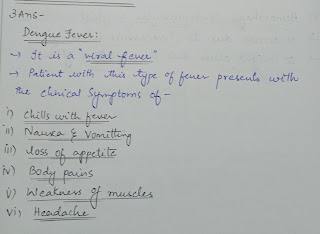 3Ans-
Dengue Fever:
→ It is a "viral fever"
→ Patient with this type of fever presents with
the clinical Symptoms of -
i) Chills with fever
ii) Nausea & Vomitting
iii) loss of appetite
iv) Body pains
v) Weakness of muscles
vi) Headache